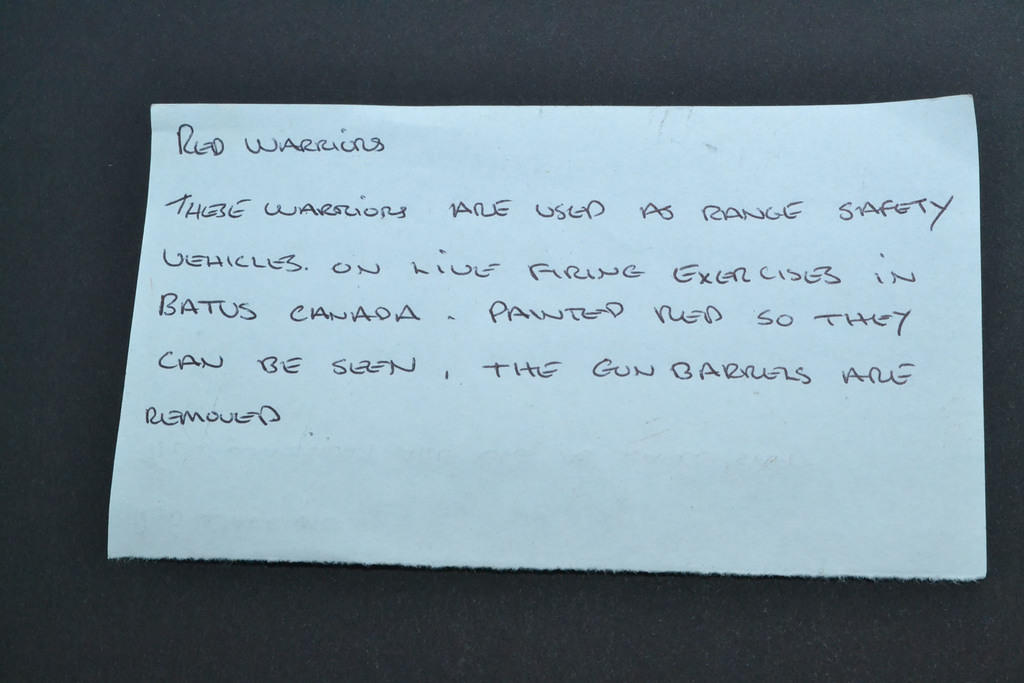 RED WARRIORS
THESE WARRIORS ARE USED AS RANGE SAFETY
VEHICLES. ON LIVE FIRING EXERCISES IN
BATUS CANADA. PAINTED RED SO THEY
CAN BE SEEN, THE GUN BARRELS ARE
REMOVED